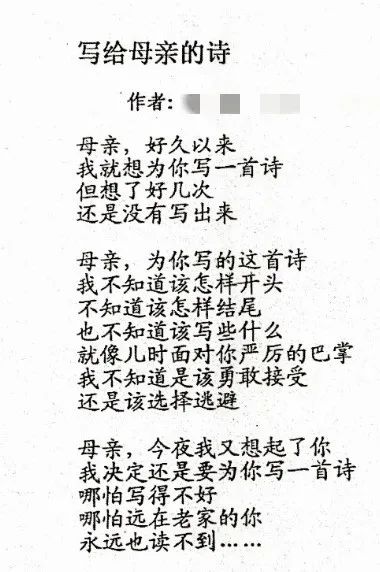 写给母亲的诗
作者：
母亲，好久以来
我就想为你写一首诗
但想了好几次
还是没有写出来
母亲，为你写的这首诗
我不知道该怎样开头
不知道该怎样结尾
也不知道该写些什么
就像儿时面对你严厉的巴掌
我不知道是该勇敢接受
还是该选择逃避
母亲，今夜我又想起了你
我决定还是要为你写一首诗
哪怕写得不好
哪怕远在老家的你
永远也读不到……